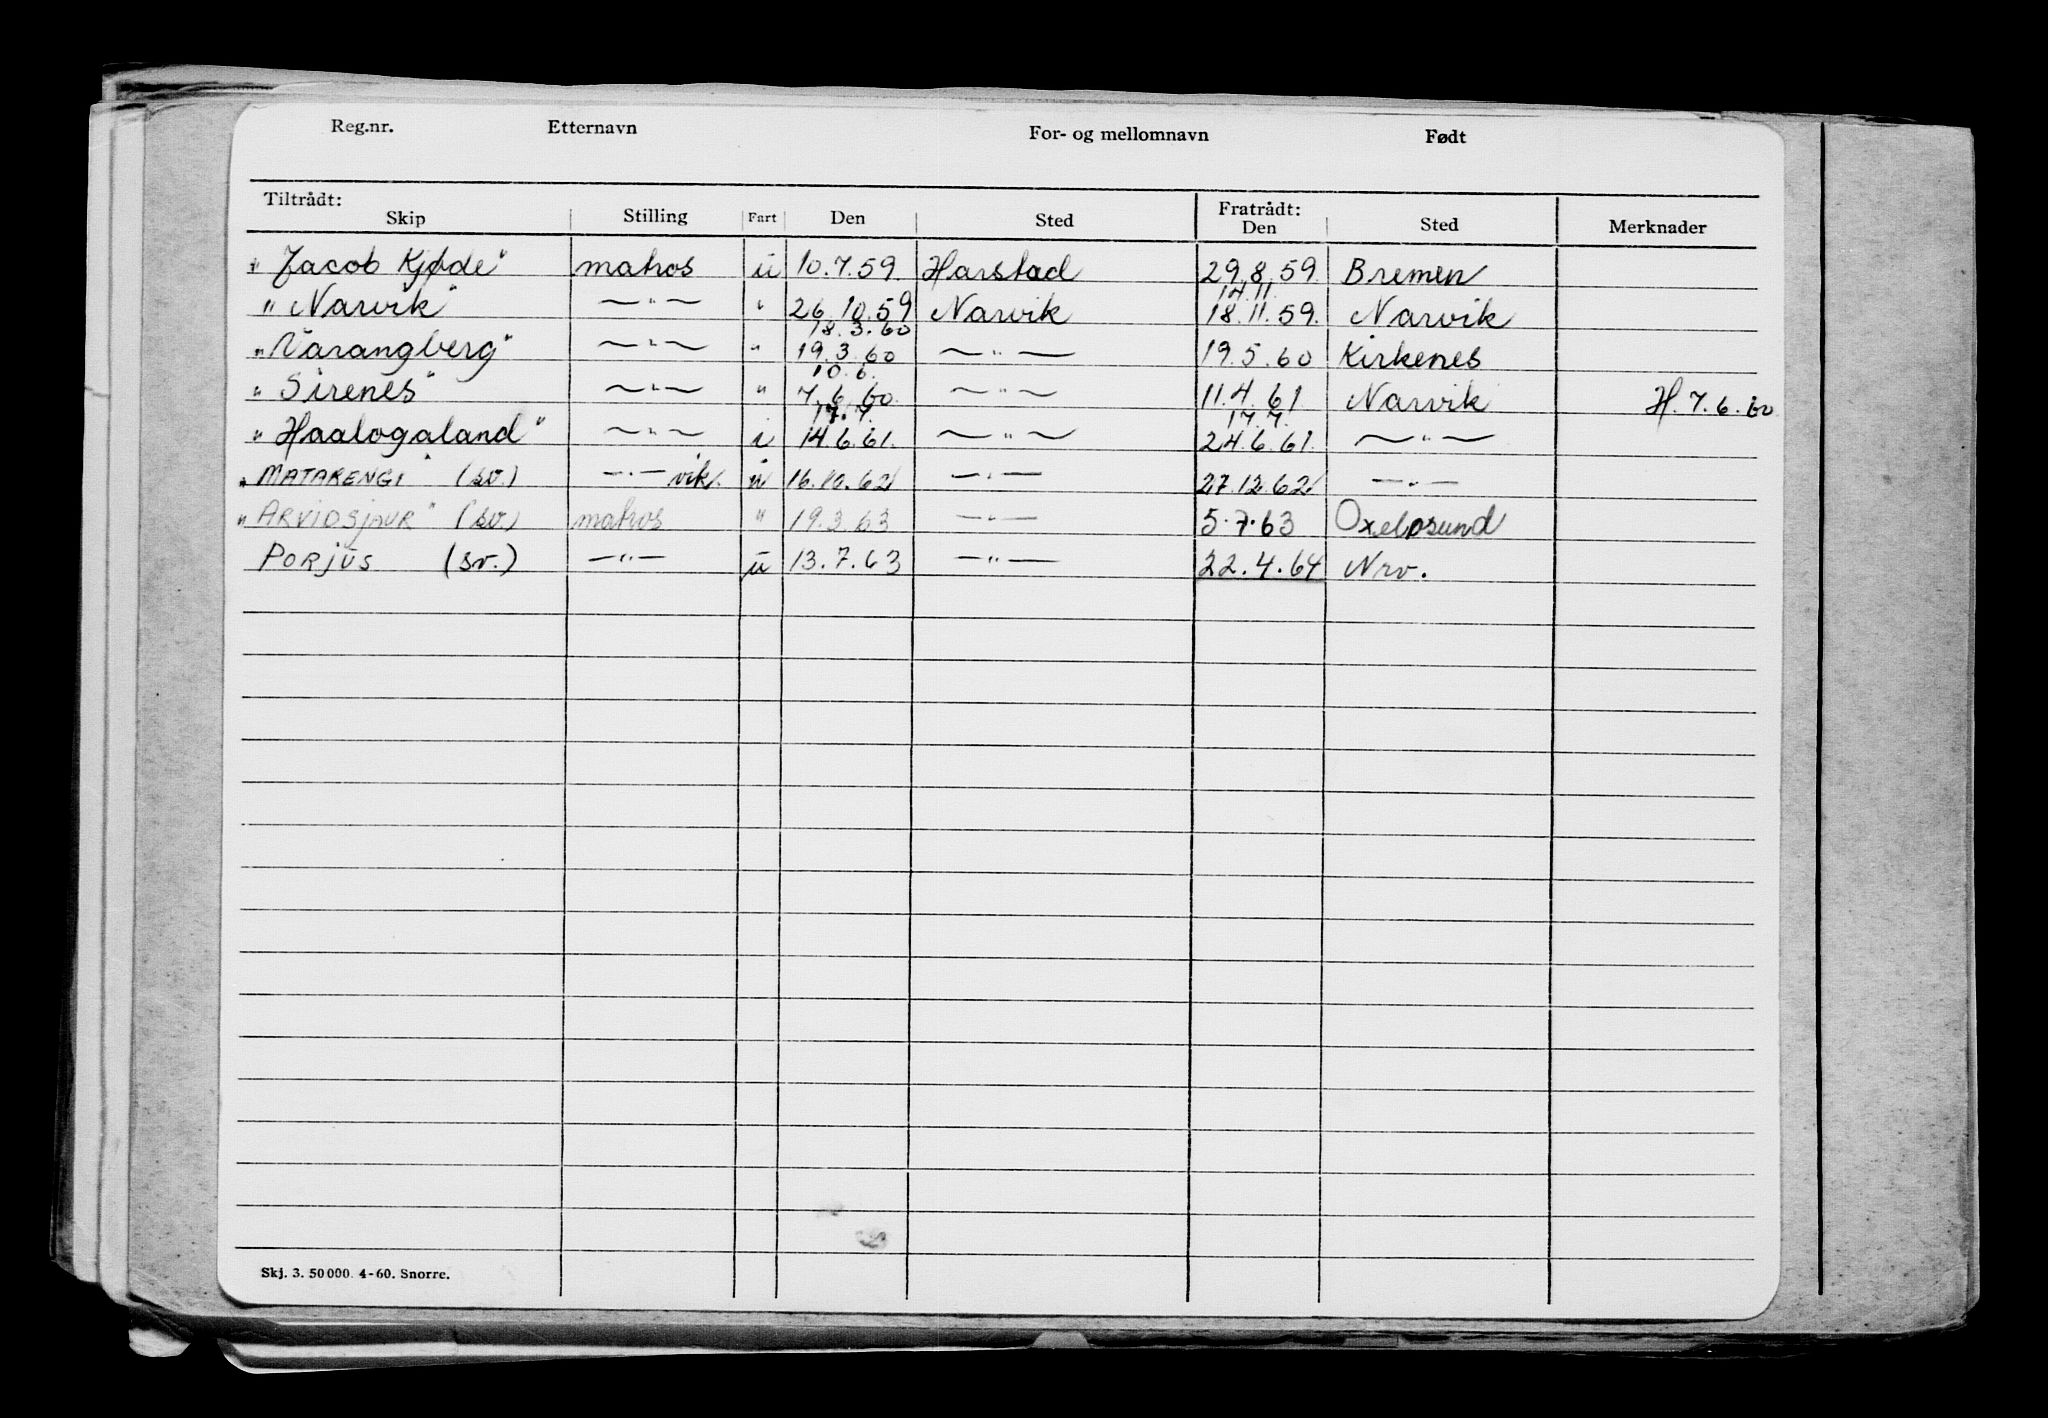 Reg.nr. Etternavn For- og mellomnavn Født
Tiltrådt: Fratrådt:
Skip Stilling Fart Den Sted Den Sted Merknader
"Jacob Kjøde" matros u 10.7.59. Harstad 29.8.59. Bremen
14.11.
"Narvik" —"— " 26.10.59 Narvik 18.11.59. Narvik
18.3.60
"Varangberg" —"— " 19.3.60 —"— 19.5.60 Kirkenes
10.6.
"Sirenes" —"— " 7.6.60. —"— 11.4.61 Narvik H. 7.6.60
17.7. 17.7.
"Haalogaland" —"— i 14.6.61. —"— 24.6.61. —"—
"MATARENGI" (sv.) —"— vik. u 16.10.62 —"— 27.12.62 —"—
"ARVIDSJAUR" (sv.) matros " 19.3.63 —"— 5.7.63 Oxelosund
PORJUS (sv.) —"— u 13.7.63 —"— 22.4.64 Nrv.
Skj. 3. 50 000. 4-60. Snorre.